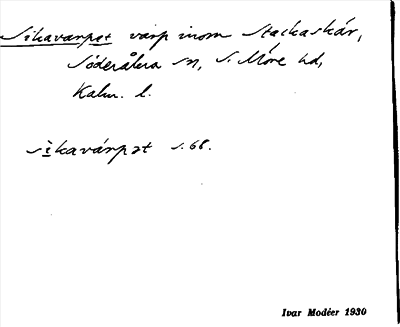 Sikavarpet varp inom Stackaskär,
Söderåkra sn, S. Möre hd,
Kalm. l.
sìkavárpət s. 68.
Ivar Modéer 1930